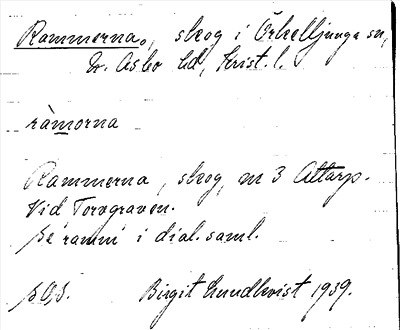 Rammerna, skog i Örkelljunga sn,
N. Åsbo hd, Krist. l.
ràmorna
Rammerna, skog, m 3 Attarp.
Vid Torvgraven.
Se 'ramm' i dial. saml.
Birgit Lundkvist 1939.